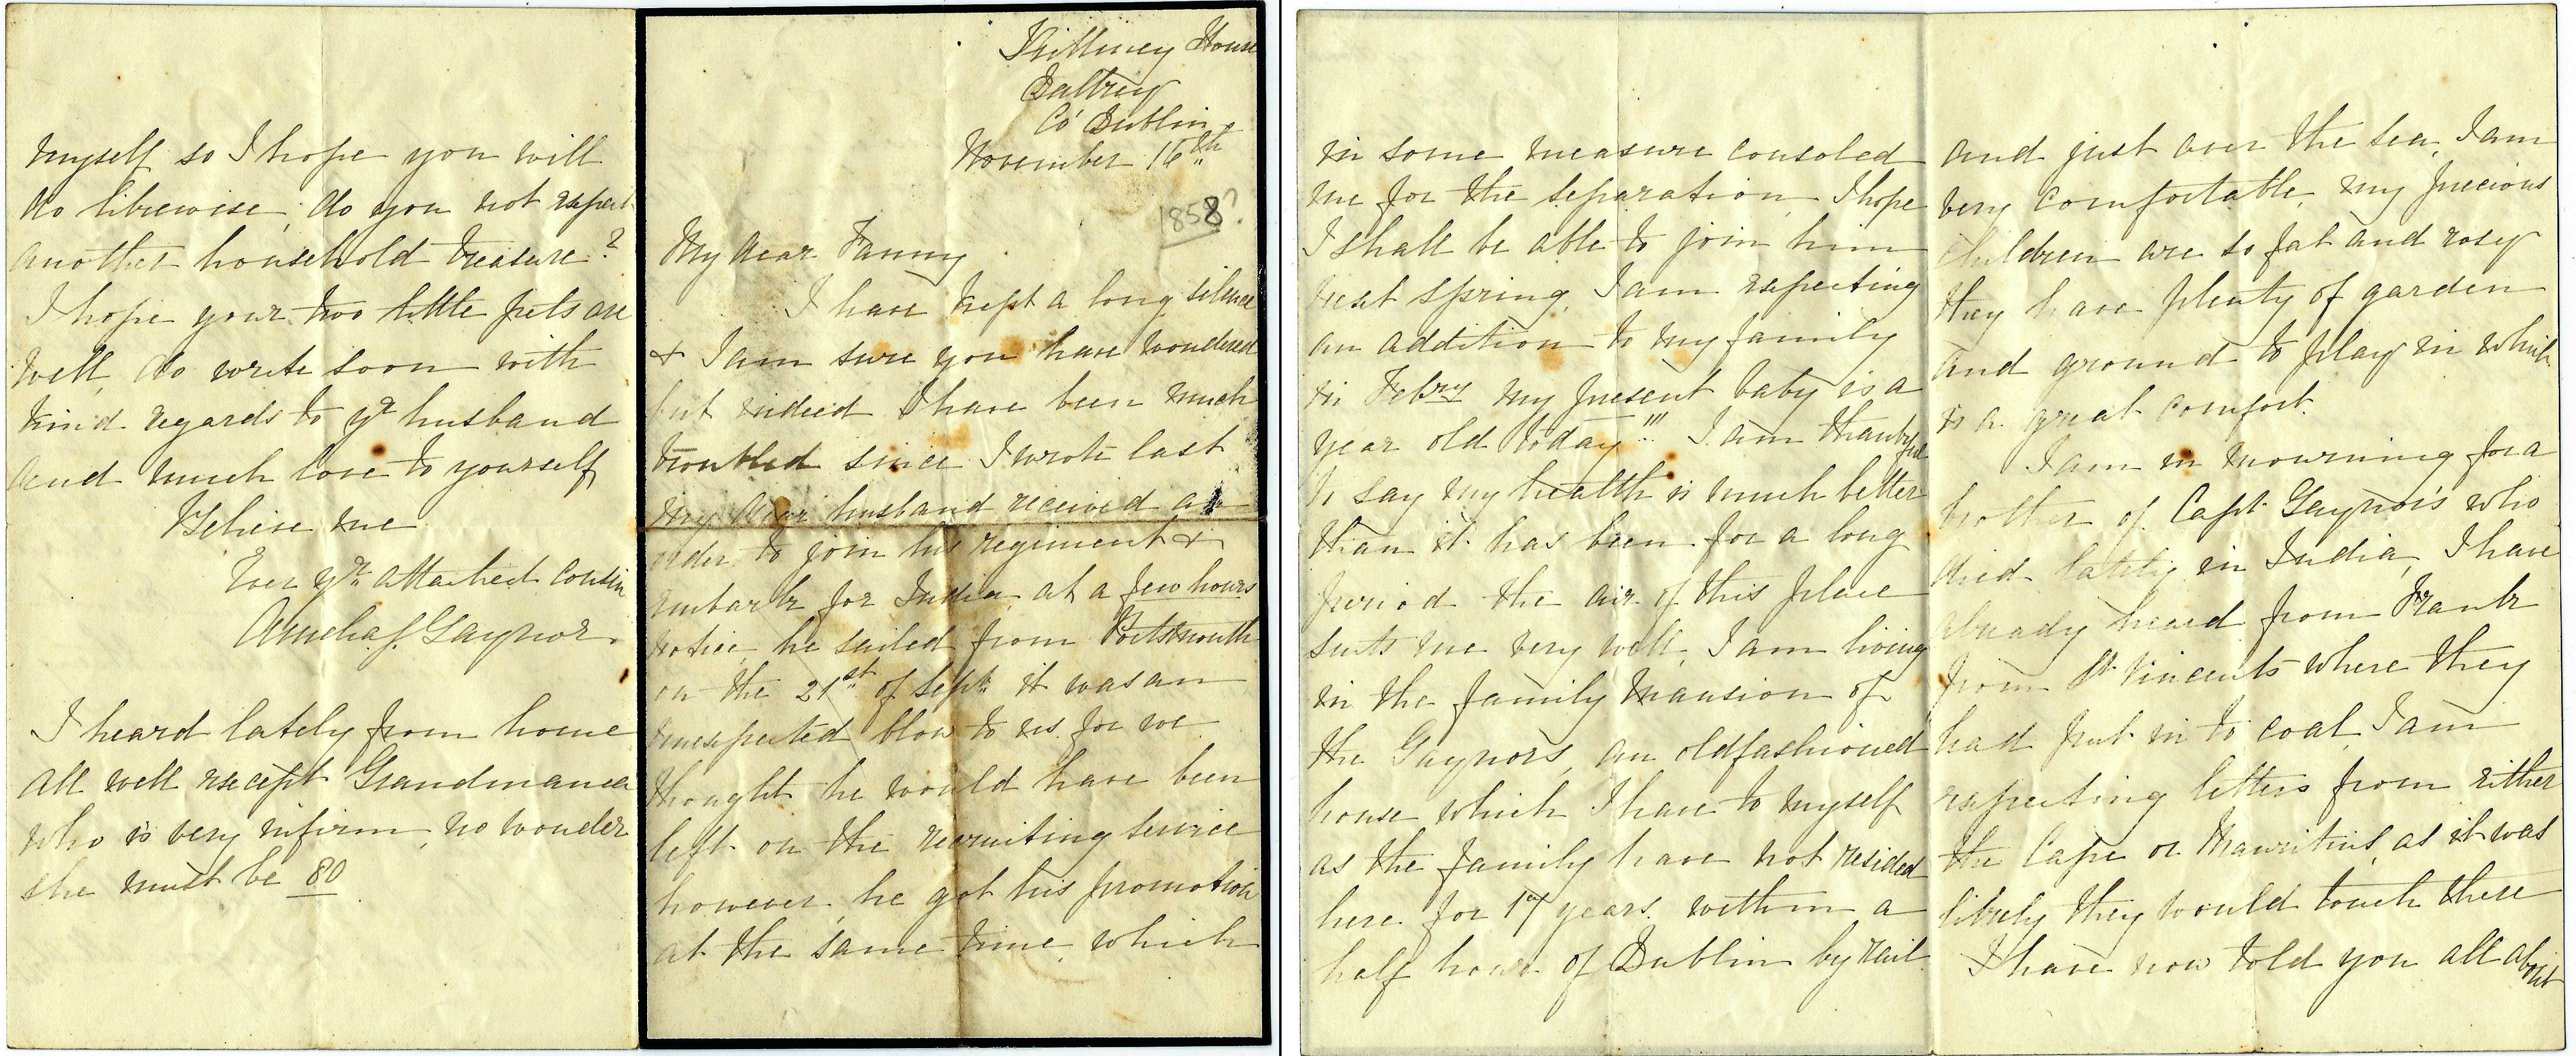 Killiney House
Co' Dublin
November 16th
1858?
My dear Fanny
I have kept a long silence
& I am sure you have wondered
but indeed I have been much
troubled since I wrote last
my dear husband received an
order to join his regiment &
embark for India at a few hours
notice, he sailed from Portsmouth
on the 21st of Sept. it was an
unexpected blow to us for we
thought he would have been
left on the recruiting service
however, he got his promotion
at the same time, which
in some measure consoled
me for the separation I hope
I shall be able to join him
next spring, I am expecting
an addition to my family
in Febry my present baby is a
year old today!!! I am thankful
to say my health is much better
than it has been for a long
period the air of this place
suits me very well, I am living
in the family mansion of
the Gaynors, an oldfashioned
house which I have to myself
as the family have not resided
here for 17 years. within a
half hour of Dublin by rail
and just over the sea, I am
very comfortable, my precious
children are so fat and rosy
they have plenty of garden
and ground to play in which
is a great comfort.
I am in mourning for a
brother of Capt Gaynor's who
died lately in India, I have
already heard from Frank
from St Vincents where they
had put in to coal, I am
expecting letters from either
the Cape or Mauritius, as it was
likely they would touch there
I have now told you all about
myself so I hope you will
do likewise, do you not expect
another household treasure?
I hope your two little pets are
well, do write soon with
kind regards to yr husband
and much love to yourself
Believe me
Ever yr attached cousin
Amelia J. Gaynor.
I heard lately from home
all well except Grandmama
who is very infirm, no wonder
she must be 80